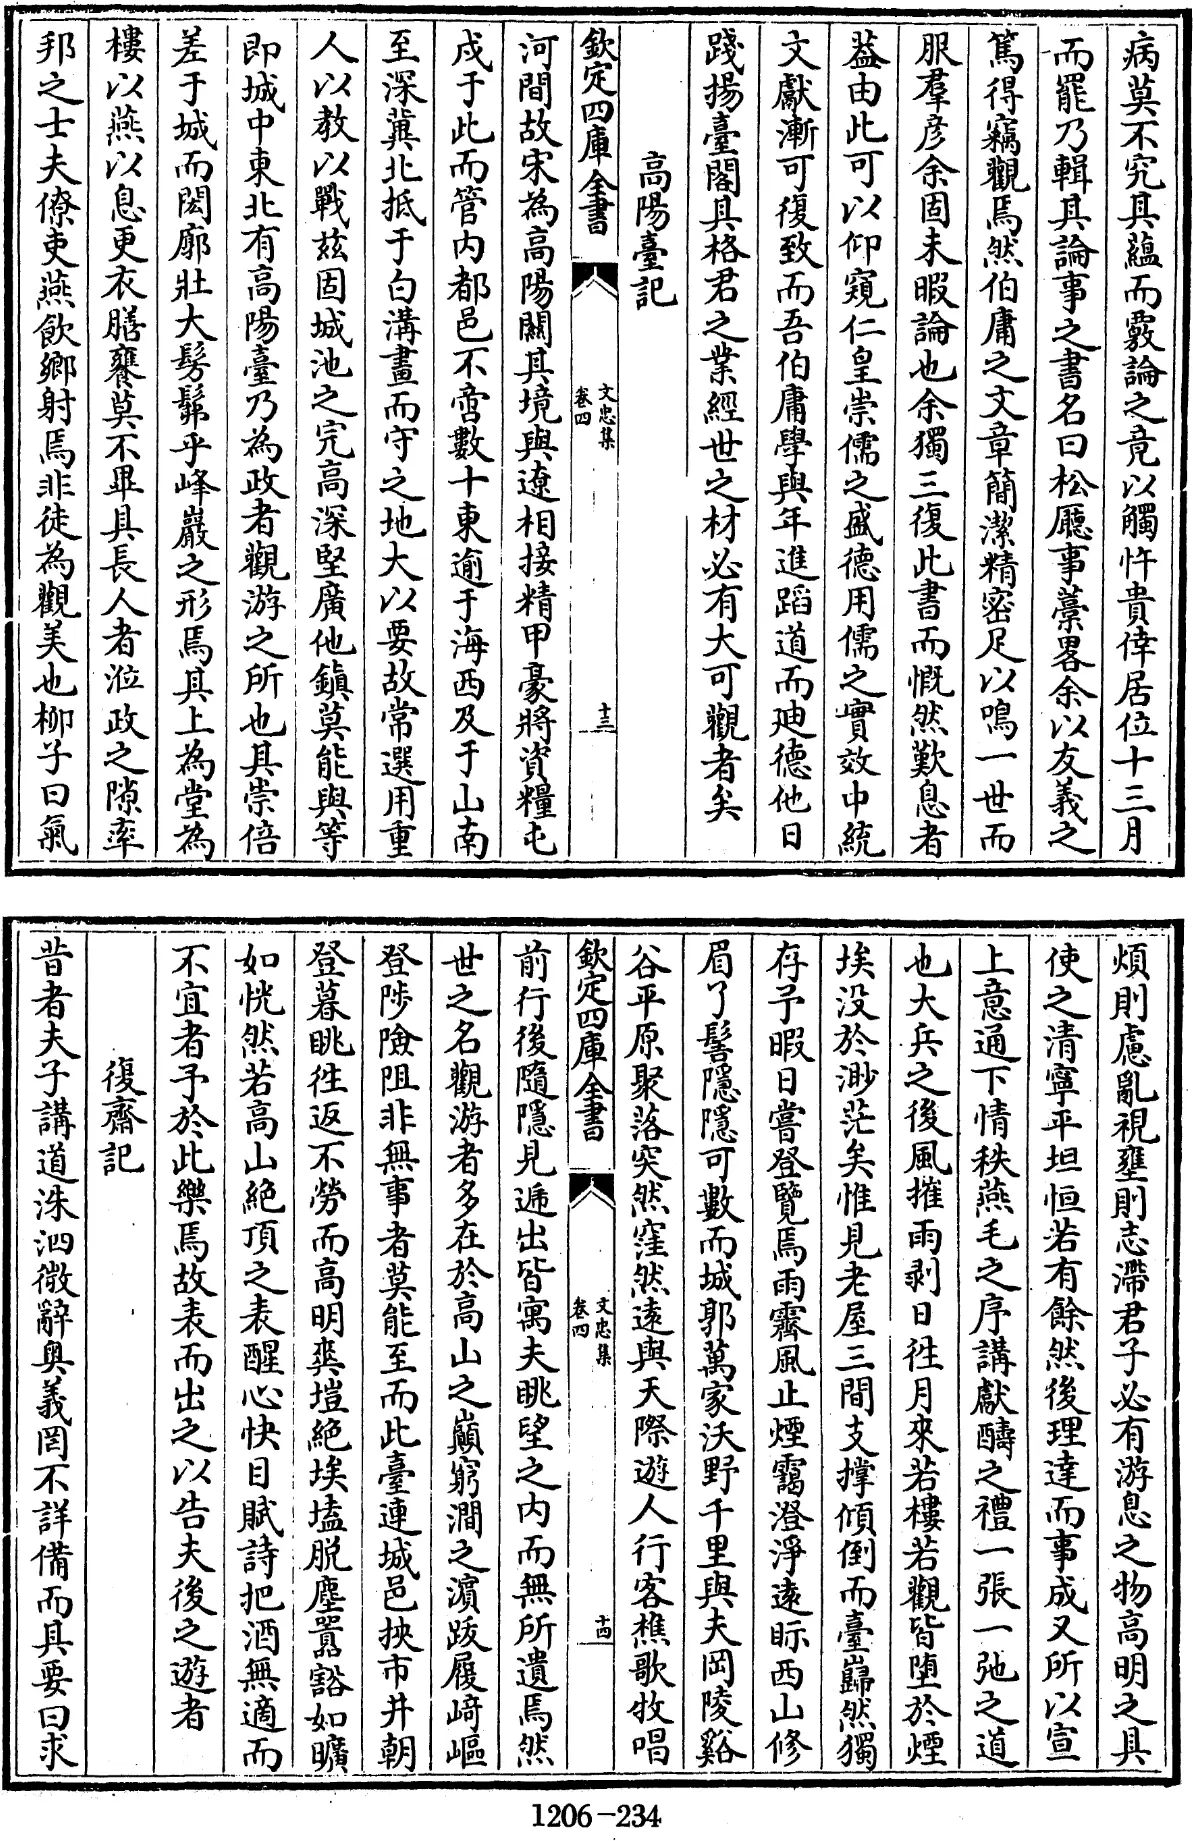 病莫不究其蘊而覈論之竟以觸忤貴倖居位十三月
而罷乃輯其論事之書名曰松廳事藁畧余以友義之
篤得竊觀焉然伯庸之文章簡潔精密足以鳴一世而
服羣彦余固未暇論也余獨三復此書而慨然歎息者
葢由此可以仰窺仁皇崇儒之盛德用儒之實效中統
文獻漸可復致而吾伯庸學與年進蹈道而廸德他日
踐揚臺閣其格君之業經世之材必有大可觀者矣
高陽臺記
欽定四庫全書
文忠集
卷四
十三
河間故宋為高陽關其境與遼相接精甲豪將資糧屯
戍于此而管内都邑不啻數十東逾于海西及于山南
至深冀北抵于白溝畫而守之地大以要故常選用重
人以教以戰兹固城池之完高深堅廣他鎮莫能與等
即城中東北有高陽臺乃為政者觀游之所也其崇倍
差于城而閎廓壯大髣髴乎峰巖之形焉其上為堂為
樓以燕以息更衣膳饔莫不畢具長人者涖政之隙率
邦之士夫僚吏燕飲鄉射焉非徒為觀美也柳子曰氣
煩則慮亂視壅則志滯君子必有游息之物高明之具
使之清寧平坦恒若有餘然後理達而事成又所以宣
上意通下情秩燕毛之序講獻酬之禮一張一弛之道
也大兵之後風摧雨剥日徃月來若樓若觀皆堕於煙
埃没於渺茫矣惟見老屋三間支撑傾倒而臺巋然獨
存予暇日嘗登覽焉雨霽風止煙靄澄淨遠眎西山修
眉了髻隱隱可數而城郭萬家沃野千里與夫岡陵谿
谷平原聚落突然窪然遠與天際遊人行客樵歌牧唱
欽定四庫全書
文忠集
卷四
十四
前行後隨隱見遞出皆寓夫眺望之内而無所遺焉然
世之名觀游者多在於高山之巔窮澗之濵跋履﨑嶇
登陟險阻非無事者莫能至而此臺連城邑挾市井朝
登暮眺徃返不勞而高明爽塏絶埃壒脱塵囂豁如曠
如恍然若高山絶頂之表醒心快目賦詩把酒無適而
不宜者予於此樂焉故表而出之以告夫後之遊者
復齋記
昔者夫子講道洙泗微辭奥義罔不詳備而其要曰求
1206-234